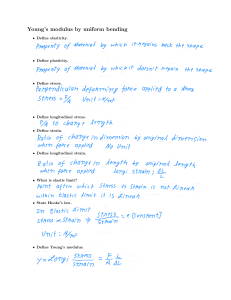 Young's modulus by uniform bending
• Define elasticity.
Property of Material by which it regains back the shape
• Define plasticity.
Property of Material by which it doesn't regain the shape
• Define stress.
Perpendicular deforming force applied to a Area
Stress = F/A Unit = N/m²
• Define longitudinal stress.
F/A to change length
• Define strain.
Ratio of change in dimension by original dimension
when force applied No Unit
• Define longitudinal strain.
Ratio of change in length by original length
when force applied longi. strain: ΔL/L
• What is elastic limit?
Point after which stress vs strain is not linear
within Elastic limit it is Linear
• State Hooke's law.
In Elastic limit
Stress ∝ Strain ⇒ Stress/Strain = E (constant)
Unit: N/m²
• Define Young's modulus.
Y = Longi Stress/Strain = F/A L/ΔL